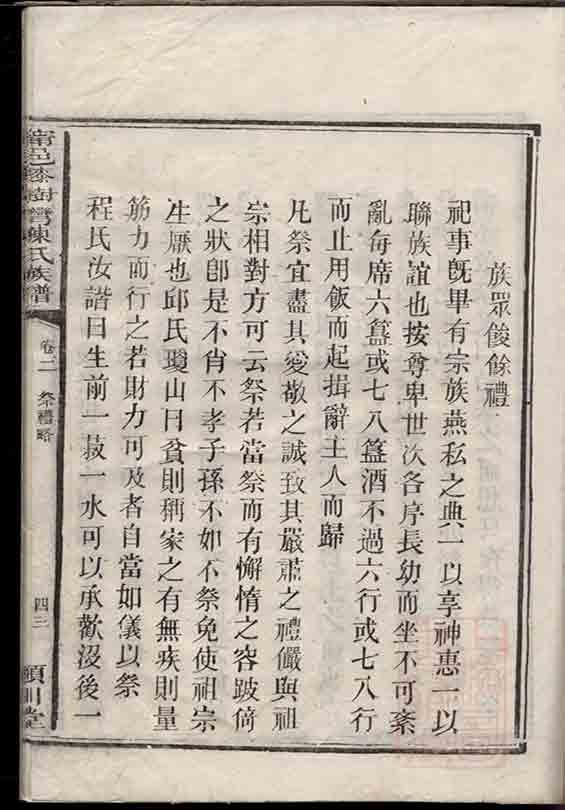 族眾俊餘禮
祀事旣畢有宗族燕私之典一以享神惠一以
聯族誼也按尊卑世次各序長幼而坐不可紊
亂每席六簋或七八簋酒不過六行或七八行
而止用飯而起揖辭主人而歸
凡祭宜盡其愛敬之誠致其嚴肅之禮儼與祖
宗相對方可云祭若當祭而有懈惰之容跛倚
之狀卽是不肖不孝子孫不如不祭免使祖宗
生厭也邱氏瓊山曰貧則稱家之有無疾則量
筋力而行之若財力可及者自當如儀以祭
程氏汝諧曰生前一菽一水可以承歡沒後一
甯邑漆樹灣陳氏族譜
卷二
祭禮略
四三
潁川堂